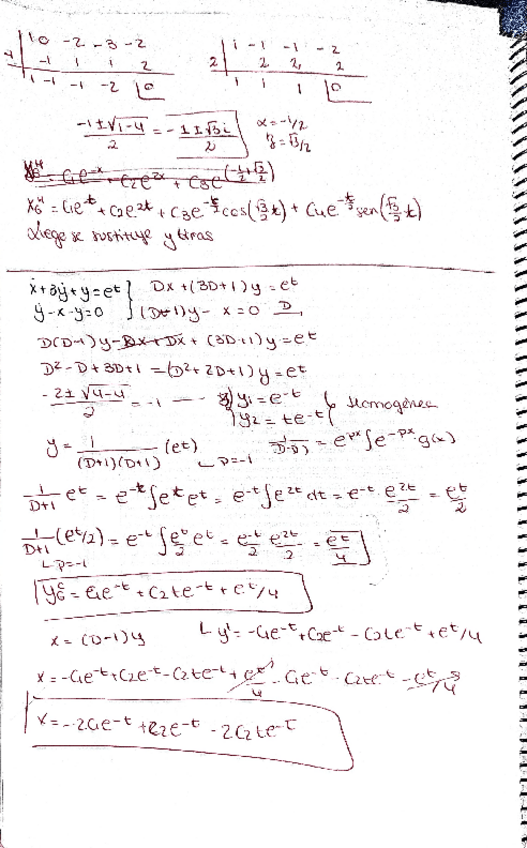 1 0 -2 -3 -2
-1 1 1 2
1 -1 -1 -2 |0
1 -1 -1 -2
2 | 2 2 2
1 1 1 |0
(-1±√1-4)/2 = (-1±√3i)/2 α=-1/2
√3/2
C1e^-x + C2e^2x + C3e
= C1e^t + C2e^2t + C3e^-t/2 cos(√3/2 t) + C4e^-t/2 sen(√3/2 t)
se sustituye y
ẋ+3ẏ+y=et } Dx+(3D+1)y=et
ẏ-x-y=0 } (D-1)y-x=0 D
D(D-1)y-Dx+Dx+(3D+1)y=et
D²-D+3D+1=(D²+2D+1)y=et
(-2±√4-4)/2 = -1 y1=e-t
y2=te-t } Homogénea
y=1/((D+1)(D+1)) (et) ∟p=-1 = epx∫e-px·g(x)
1/(D+1) et = e-t∫et et = e-t∫e2t dt = e-t·e2t/2 = et/2
1/(D+1) (et/2) = e-t∫et/2 et = e-t/2 e2t/2 = et/4
∟p=-1
= C1e-t + C2te-t + et/4
x=(D-1)y ∟y'=-C1e-t+C2e-t-C2te-t+et/4
x=-C1e-t+C2e-t-C2te-t+et/4-C1e-t-C2te-t-et/4
x=-2C1e-t+C2e-t-2C2te-t